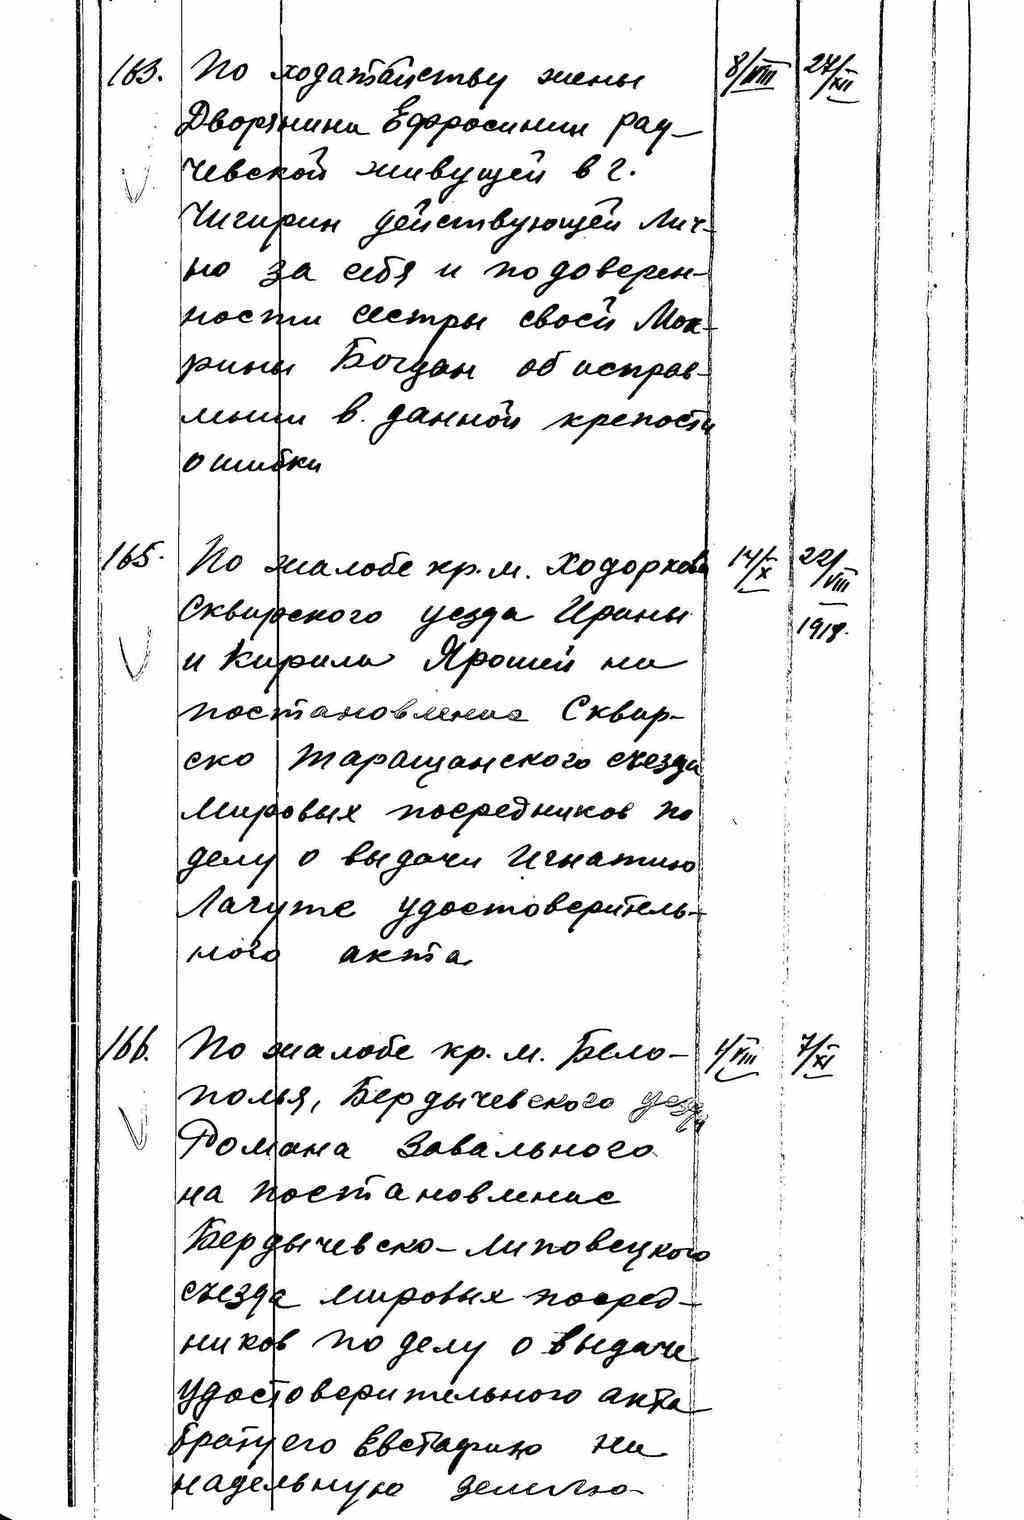 163. По ходатайству жены 8/VIII 27/XII
Дворянина Ефросинии Рад-
чевской живущей в г.
Чигирин действующей лич-
но за себя и по доверен-
ности сестры своей Мок-
рины Богдан об исправ-
лении в данной крепости
ошибки
165. По жалобе кр. м. Ходоркова 14/X 22/VIII
Сквирского уезда Ирины 1918.
и Кирила Ярошей на
постановление Сквир-
ско Таращанского съезда
мировых посредников по
делу о выдачи Игнатию
Лагуте удостоверитель-
ного акта
166. По жалобе кр. м. Бело- 4/VIII 7/XI
полья, Бердычевского уезда
Романа Завального
на постановление
Бердычевско-Липовецкого
съезда мировых посред-
ников по делу о выдаче
удостоверительного акта
брату его Евстафию на
надельную землю